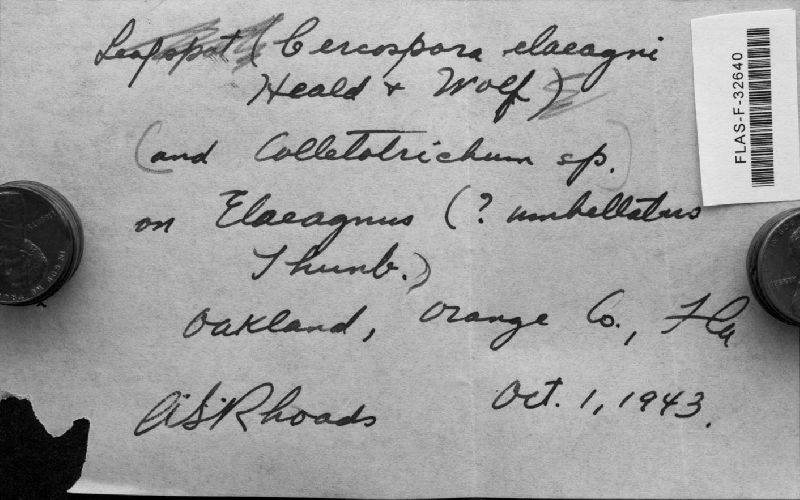 Leafspot (Cercospora elaeagni
Heald & Wolf)
(and Colletotrichum sp.)
on Elaeagnus (? umbellatus
Thunb.)
Oakland, Orange Co., Fla
A.S. Rhoads Oct. 1, 1943.
FLAS-F-32640